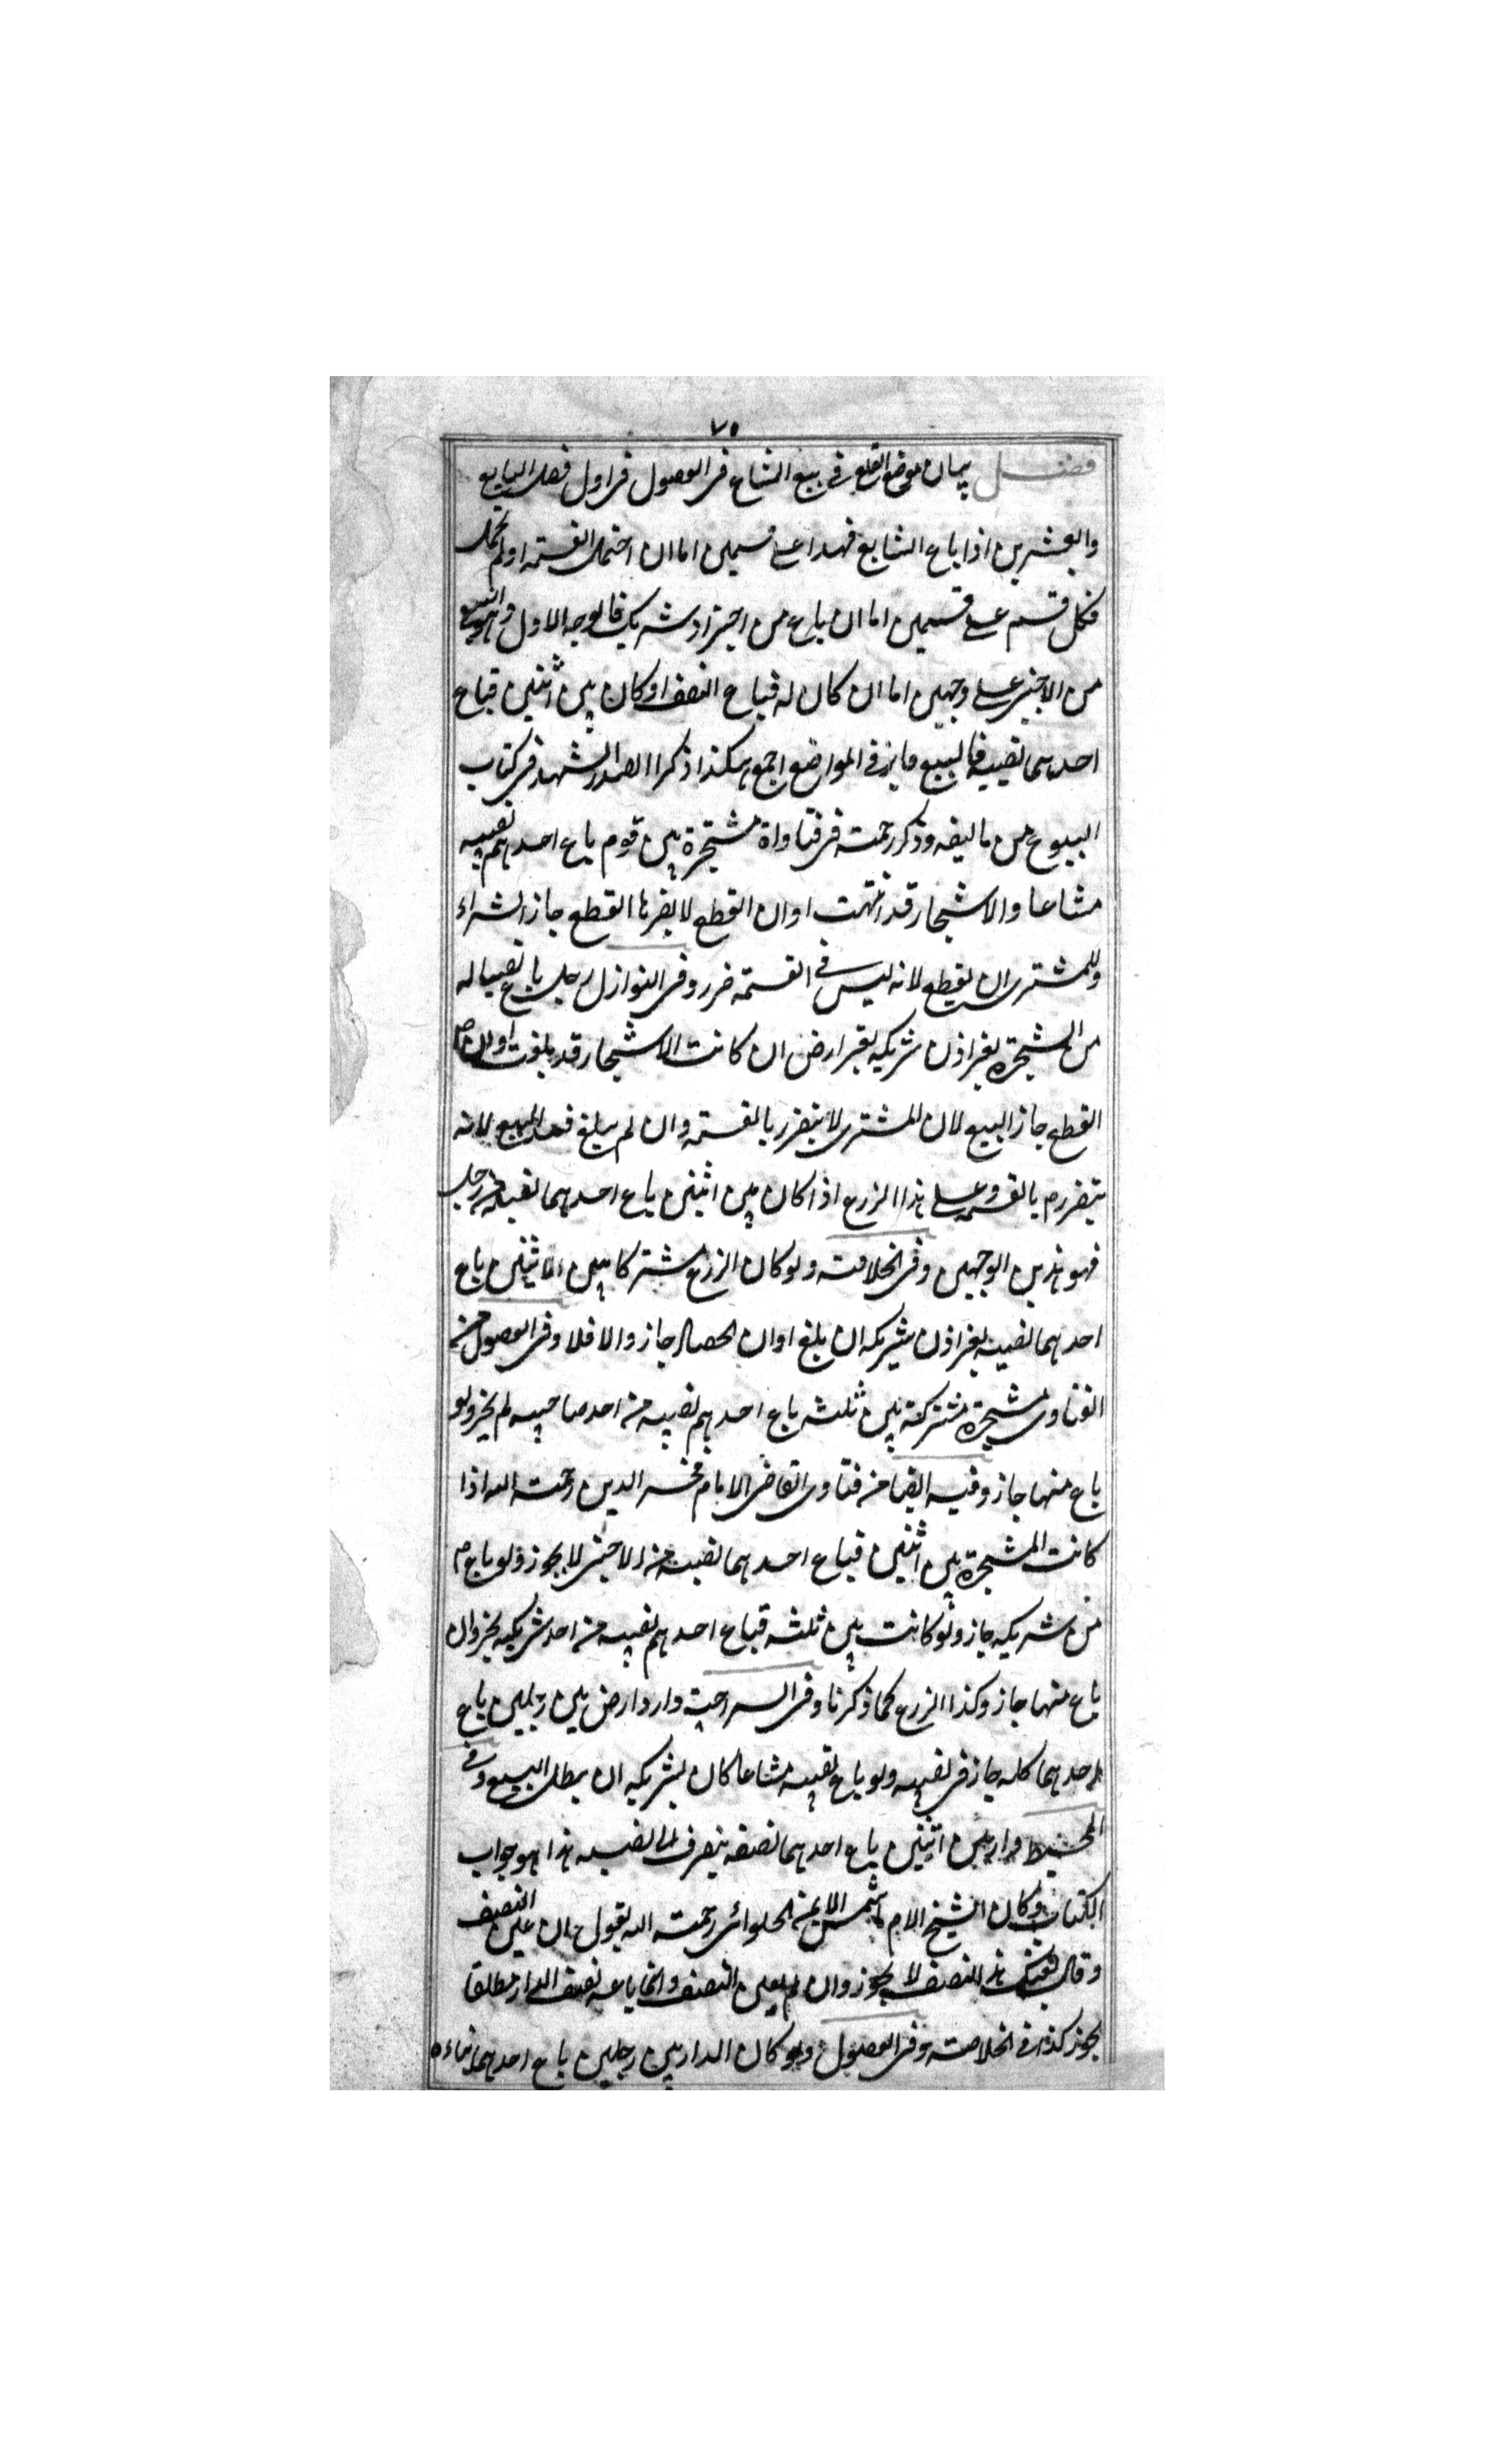 ٧٥
فصل بيان مواضع القطع في بيع المشاع في الفصول في اول فصل السابع
والعشرين اذا باع الشايع فهذا على قسمين اما ان احتمل القسمة او لم يحتمل
فكل قسم على قسمين اما ان باع من اجنبي او شريك فالوجه الاول وهو البيع
من الاجنبي على وجهين اما ان كان له فباع النصف او كان بين اثنين فباع
احدهما نصيبه فالبيع جايز في المواضع اجمع هكذا ذكر الصدر الشهيد في كتاب
البيوع من تاليفه وذكر رحمة في فتاواة مشجرة بين قوم باع احدهم نصيبه
مشاعا والاشجار قد انتهت اوان القطع لا يضرها القطع جاز الشراء
وللمشتري ان يقطع لانه ليس في القسمة ضرر وفي النوازل رجل باع نصيبا له
من المشجرة بغير اذن شريكه بغير ارض ان كانت الاشجار قد بلغت اوان
القطع جاز البيع لان المشتري لا يتضرر بالقسمة وان لم يبلغ فسد البيع لانه
يتضرر بالقسمة وعلى هذا الزرع اذا كان بين اثنين باع احدهما نصيبه من رجل
فهو هذين الوجهين وفي الخلاصة ولو كان الزرع مشتركا بين الاثنين باع
احدهما نصيبه بغير اذن شريكه ان بلغ اوان الحصاد جاز والا فلا وفي الفصول من
الفتاوى مشجرة مشتركة بين ثلثة باع احدهم نصيبه من احد صاحبيه لم يجز ولو
باع منهما جاز وفيه ايضا من فتاوى القاضي الامام فخر الدين رحمت الله اذا
كانت المشجرة بين اثنين فباع احدهما نصيبه من الاجنبي لا يجوز ولو باع
من شريكه جاز ولو كانت بين ثلثة فباع احدهم نصيبه من احد شريكيه لم يجز وان
باع منهما جاز وكذا الزرع كما ذكرنا وفي السراجية دار او ارض بين رجلين باع
احدهما كله جاز في نصيبه ولو باع نصيبه مشاعا كان لشريكه ان يبطل البيع وفي
المحيط دار بين اثنين باع احدهما نصفه ينصرف الى نصيبه هذا هو جواب
الكتاب وكان الشيخ الامام شمس الايمة الحلوائي رحمت الله يقول ان عين النصف
وقال بعتك هذا النصف لا يجوز وان لم يعين النصف وانما باعه نصف الدار مطلقا
يجوز كذا في الخلاصة وفي الفصول ولو كان الدار بين رجلين باع احدهما بناءه